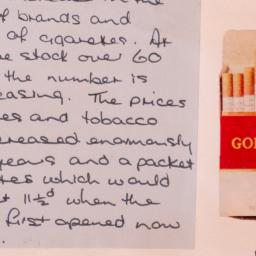 of brands and
of cigarettes. At
stock over 60
the number is
The prices
and tobacco
enormously
years and a packet
which would
11½d when the
first opened now
GOL